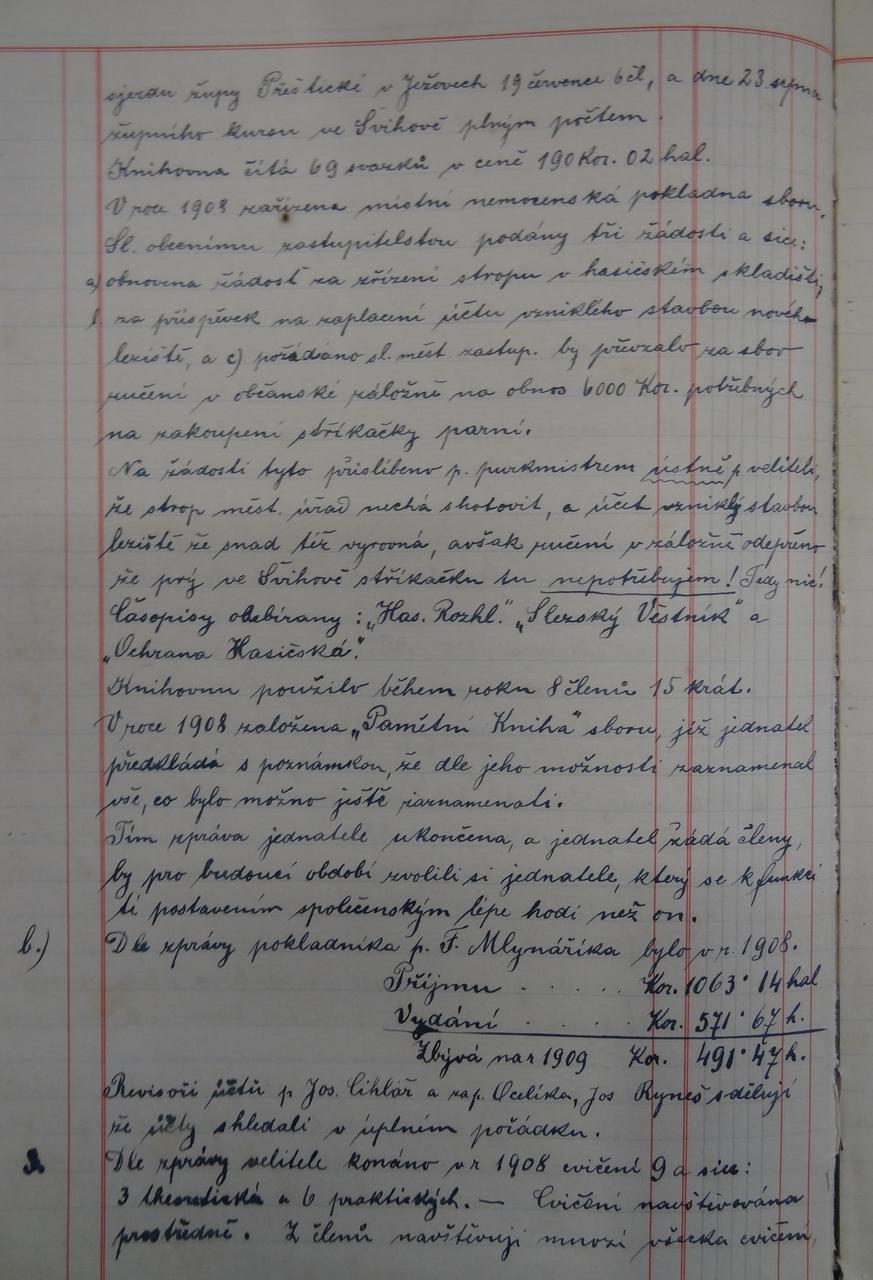 sjezdu župy Přeštické v Ježovech 19 července 6 čl, a dne 23 srpna
župního kursu ve Švihově plným počtem.
Knihovna čítá 69 svazků v ceně 190 Kor. 02 hal.
V roce 1908 zařízena místní nemocenská pokladna sboru.
Sl. obecnímu zastupitelstvu podány tři žádosti a sice:
a) obnovena žádost za zřízení stropu v hasičském skladišti,
b. za příspěvek na zaplacení účtu vzniklého stavbou nového
leziště, a c) požádáno sl. měst. zastup. by převzalo za sbor
ručení v občanské záložně na obnos 6000 Kor. potřebných
na zakoupení stříkačky parní.
Na žádosti tyto přislíbeno p. purkmistrem ústně p veliteli,
že strop měst. úřad nechá shotovit, a účet vzniklý stavbou
leziště že snad též vyrovná, avšak ručení v záložně odepřeno
že prý ve Švihově stříkačku tu nepotřebujem! Tedy nic!
Časopisy obebírany: „Has. Rozhl." „Slezský Věstník" a
„Ochrana Hasičská".
Knihovnu použilo během roku 8 členů 15 krát.
V roce 1908 založena „Pamětní Kniha" sboru, již jednatel
předkládá s poznámkou, že dle jeho možnosti zaznamenal
vše, co bylo možno ještě zaznamenati.
Tím zpráva jednatele ukončena, a jednatel žádá členy,
by pro budoucí období zvolili si jednatele, který se k funkci
té postavením společenským lépe hodí než on.
b.) Dle zprávy pokladníka p. F. Mlynáříka bylo v r. 1908.
Příjmu . . . . . Kor. 1063 · 14 hal
Vydání . . . . Kor. 571 · 67 h.
Zbývá na r 1909 Kor. 491 · 47 h.
Revisoři účtů p Jos. Cihlář a zap. Ocelíka, Jos Ryneš sdělují
že účty shledali v úplném pořádku.
3. Dle zprávy velitele konáno v r 1908 cvičení 9 a sice:
3 theoretická a 6 praktických. — Cvičení navštěvována
prostředně. Z členů navštěvují mnozí všecka cvičení,